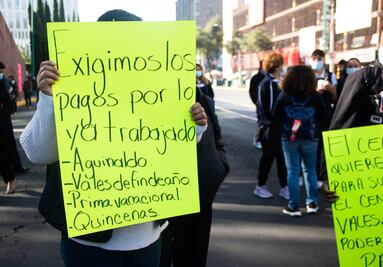 Exigimos los
pagos por lo
ya trabajado
-Aguinaldo.
-Vales de fin de año
-Prima vacacional.
-Quincenas.
El CE
QUIERE
PARA SU
EL CEN
VALES
PODER